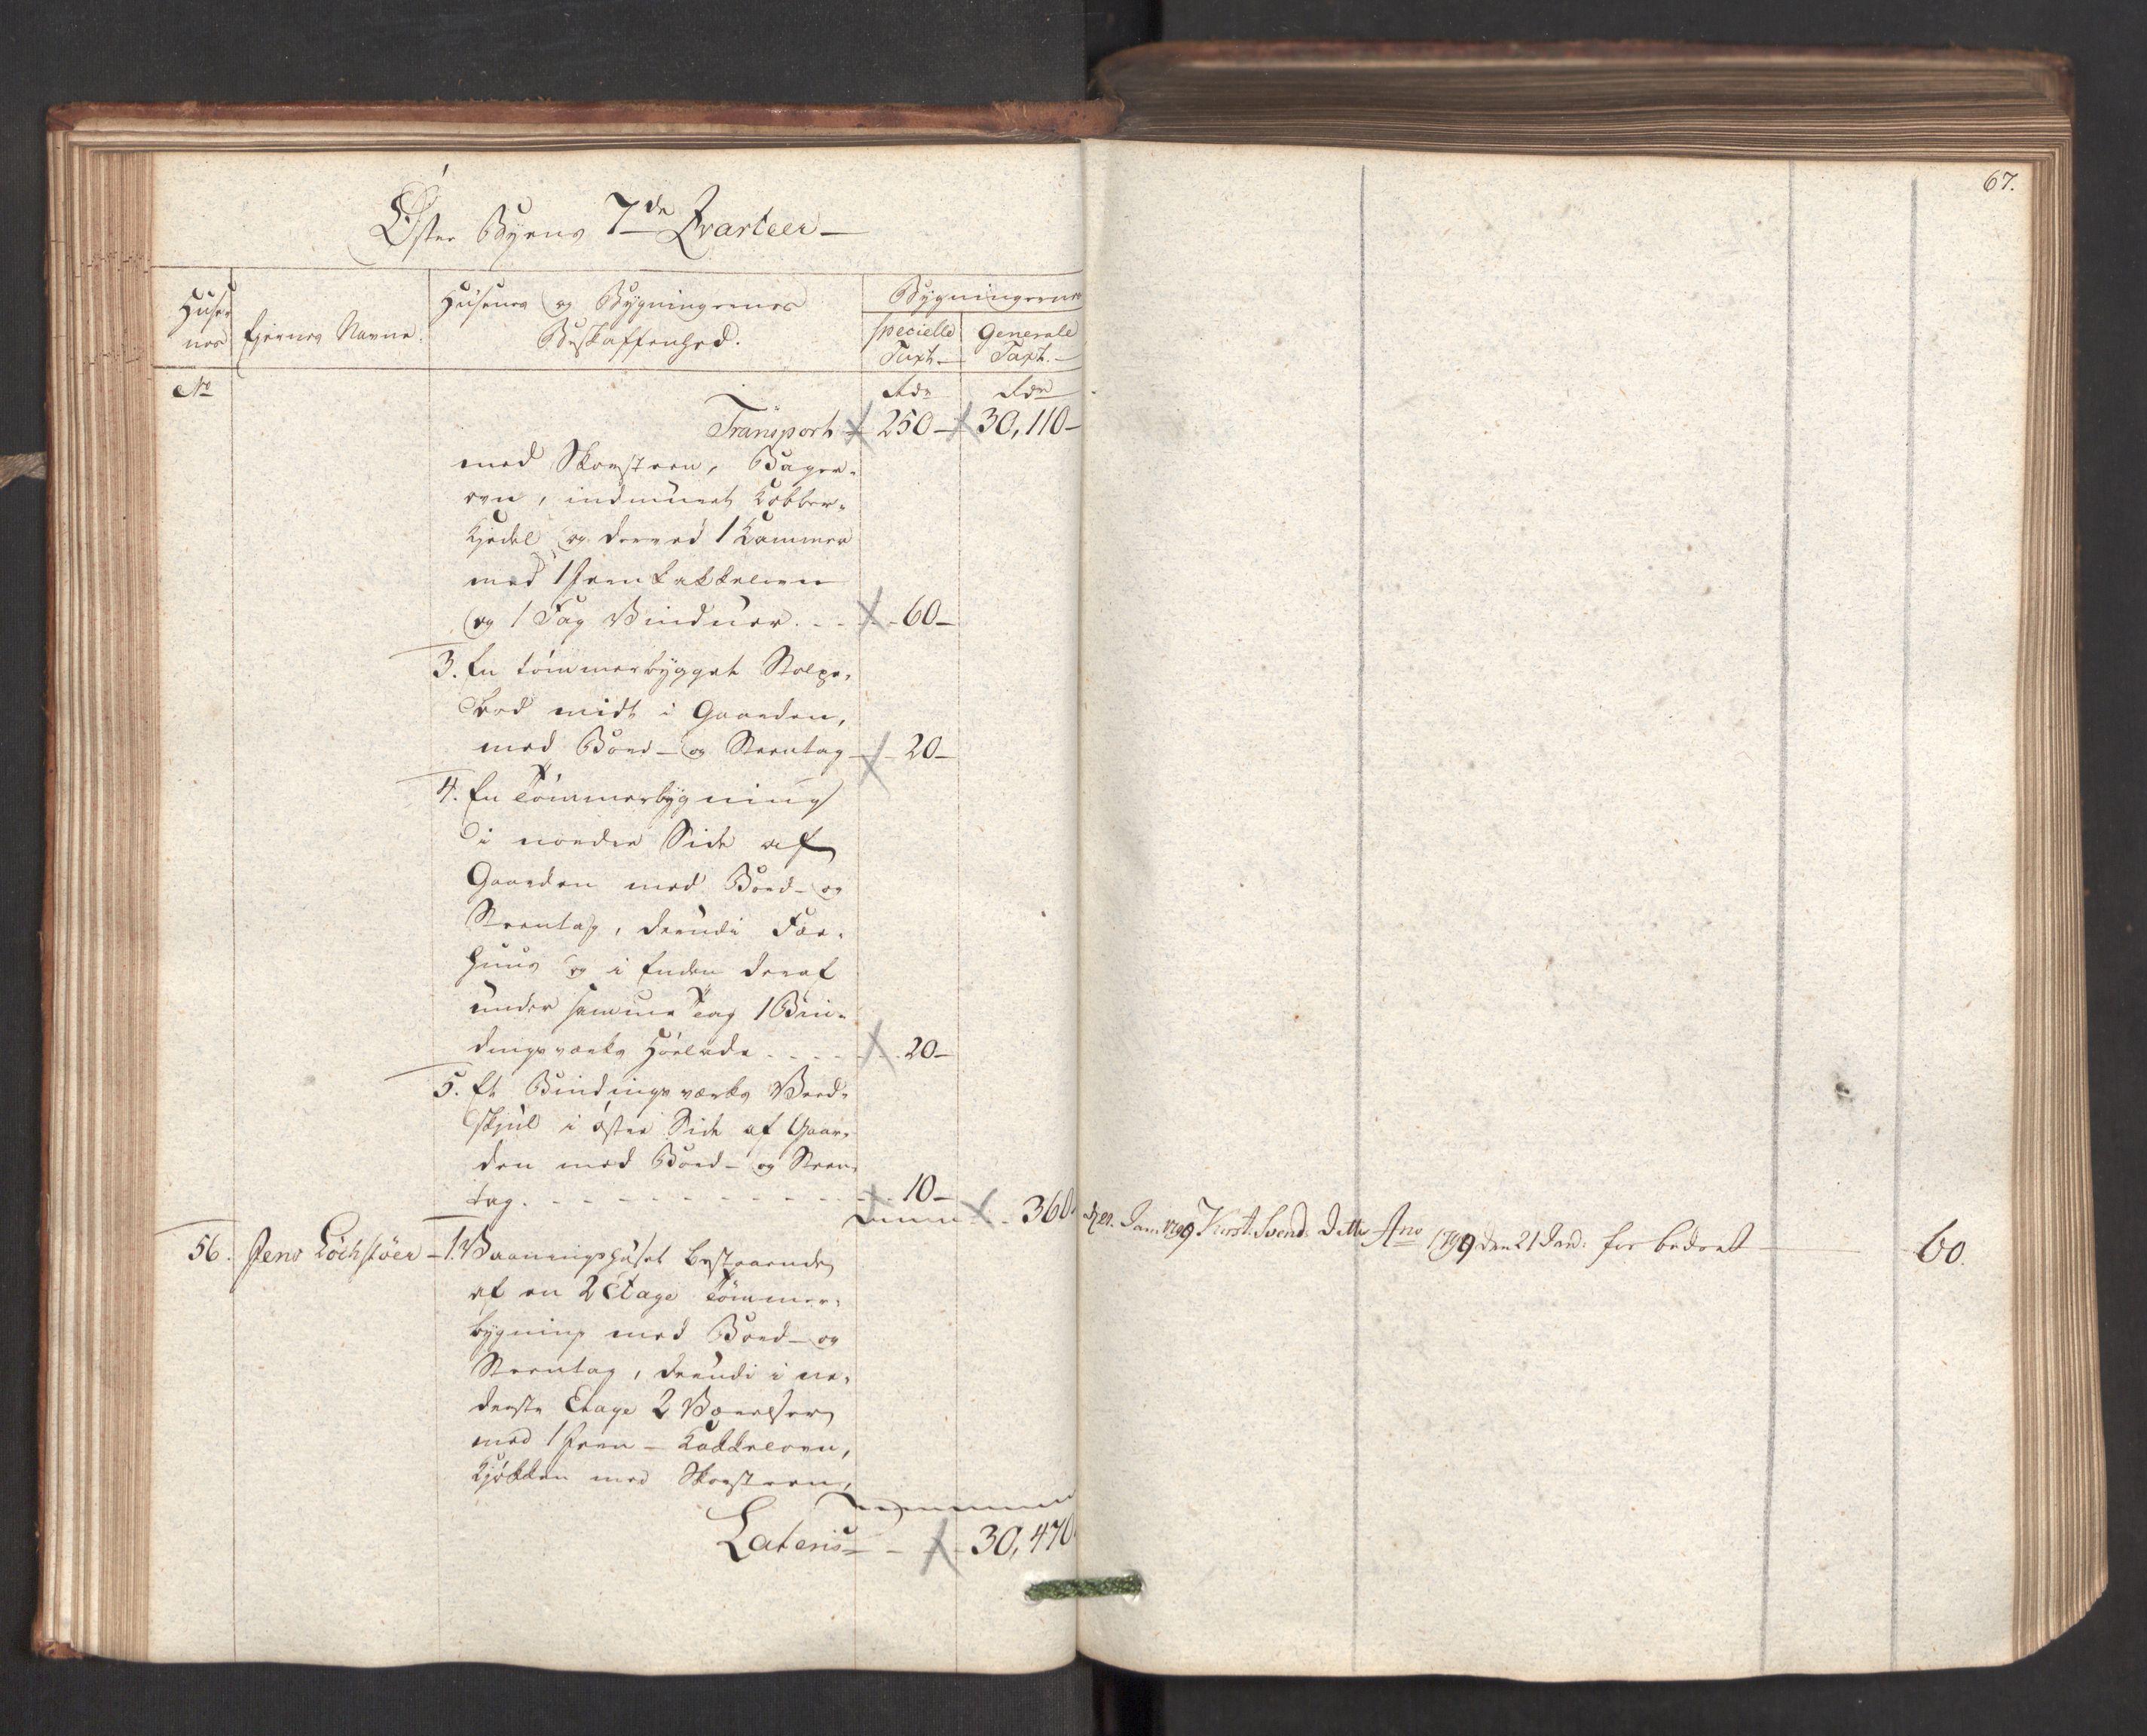 67.
Øster Byens 7de Qvarteer
Huse-
nes
Ejernes Navne.
Husenes og Bygningernes
Beskaffenhed.
Bygningernes
specielle
Taxt.
Generale
Taxt.
No
Rdr
Rdr
Transport 250 - 30,110 -
med Skorsteen, Bager-
ovn, indmuret Kobber-
Kjedel og derved 1 Kammer
med 1 Jern Kakkelovn
og 1 Fag Vinduer. - - 60 -
3. En tømmerbygget Stolpe-
bod midt i Gaarden,
med Bord- og Steentag - 20 -
4. En Tømmerbygning
i norder Side af
Gaarden med Bord- og
Steentag, deri Fæe-
huus og i Enden deraf
under samme Tag 1 Bin-
dingsværks Høelade - - - 20 -
5. Et Bindingsværks Veed-
skjul i øster Side af Gaar-
den med Bord- og Steen-
tag. - - - - - - 10 -
360.
56. Jens Lochstöer - 1. Vaaningshuset bestaaende
1799 den 21 for bedret 60.
af en 2 Etage Tømmer-
bygning med Bord- og
Steentag, derudi i ne-
derste Etage 2 Værelser
med 1 Jern-Kakkelovn,
Kjøkken med Skorsteen,
Lateris - - 30,470